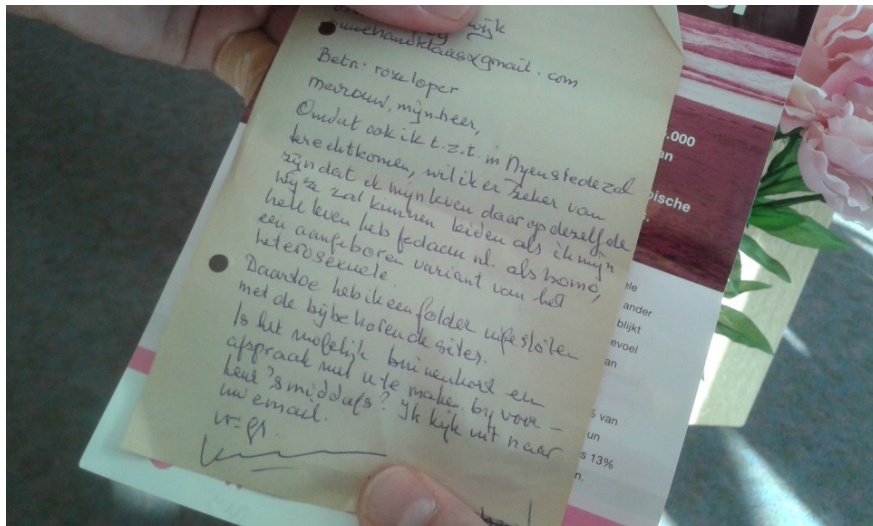 wijk
@gmail.com
Betr: roze loper
mevrouw, mijnheer,
Omdat ook ik t.z.t. in Nyenstede zal
terechtkomen, wil ik er zeker van
zijn dat ik mijn leven daar op dezelfde
wijze zal kunnen leiden als ik mijn
hele leven heb gedaan nl. als homo,
een aangeboren variant van het
heterosexuele
Daartoe heb ik een folder ingesloten
met de bijbehorende sites.
Is het mogelijk binnenkort een
afspraak met u te maken bij voor-
keur 's middags? Ik kijk uit naar
uw email.
vr. gr.
.000
an
ische
ele
ander
blijkt
evoel
an
% van
un
s 13%
n.